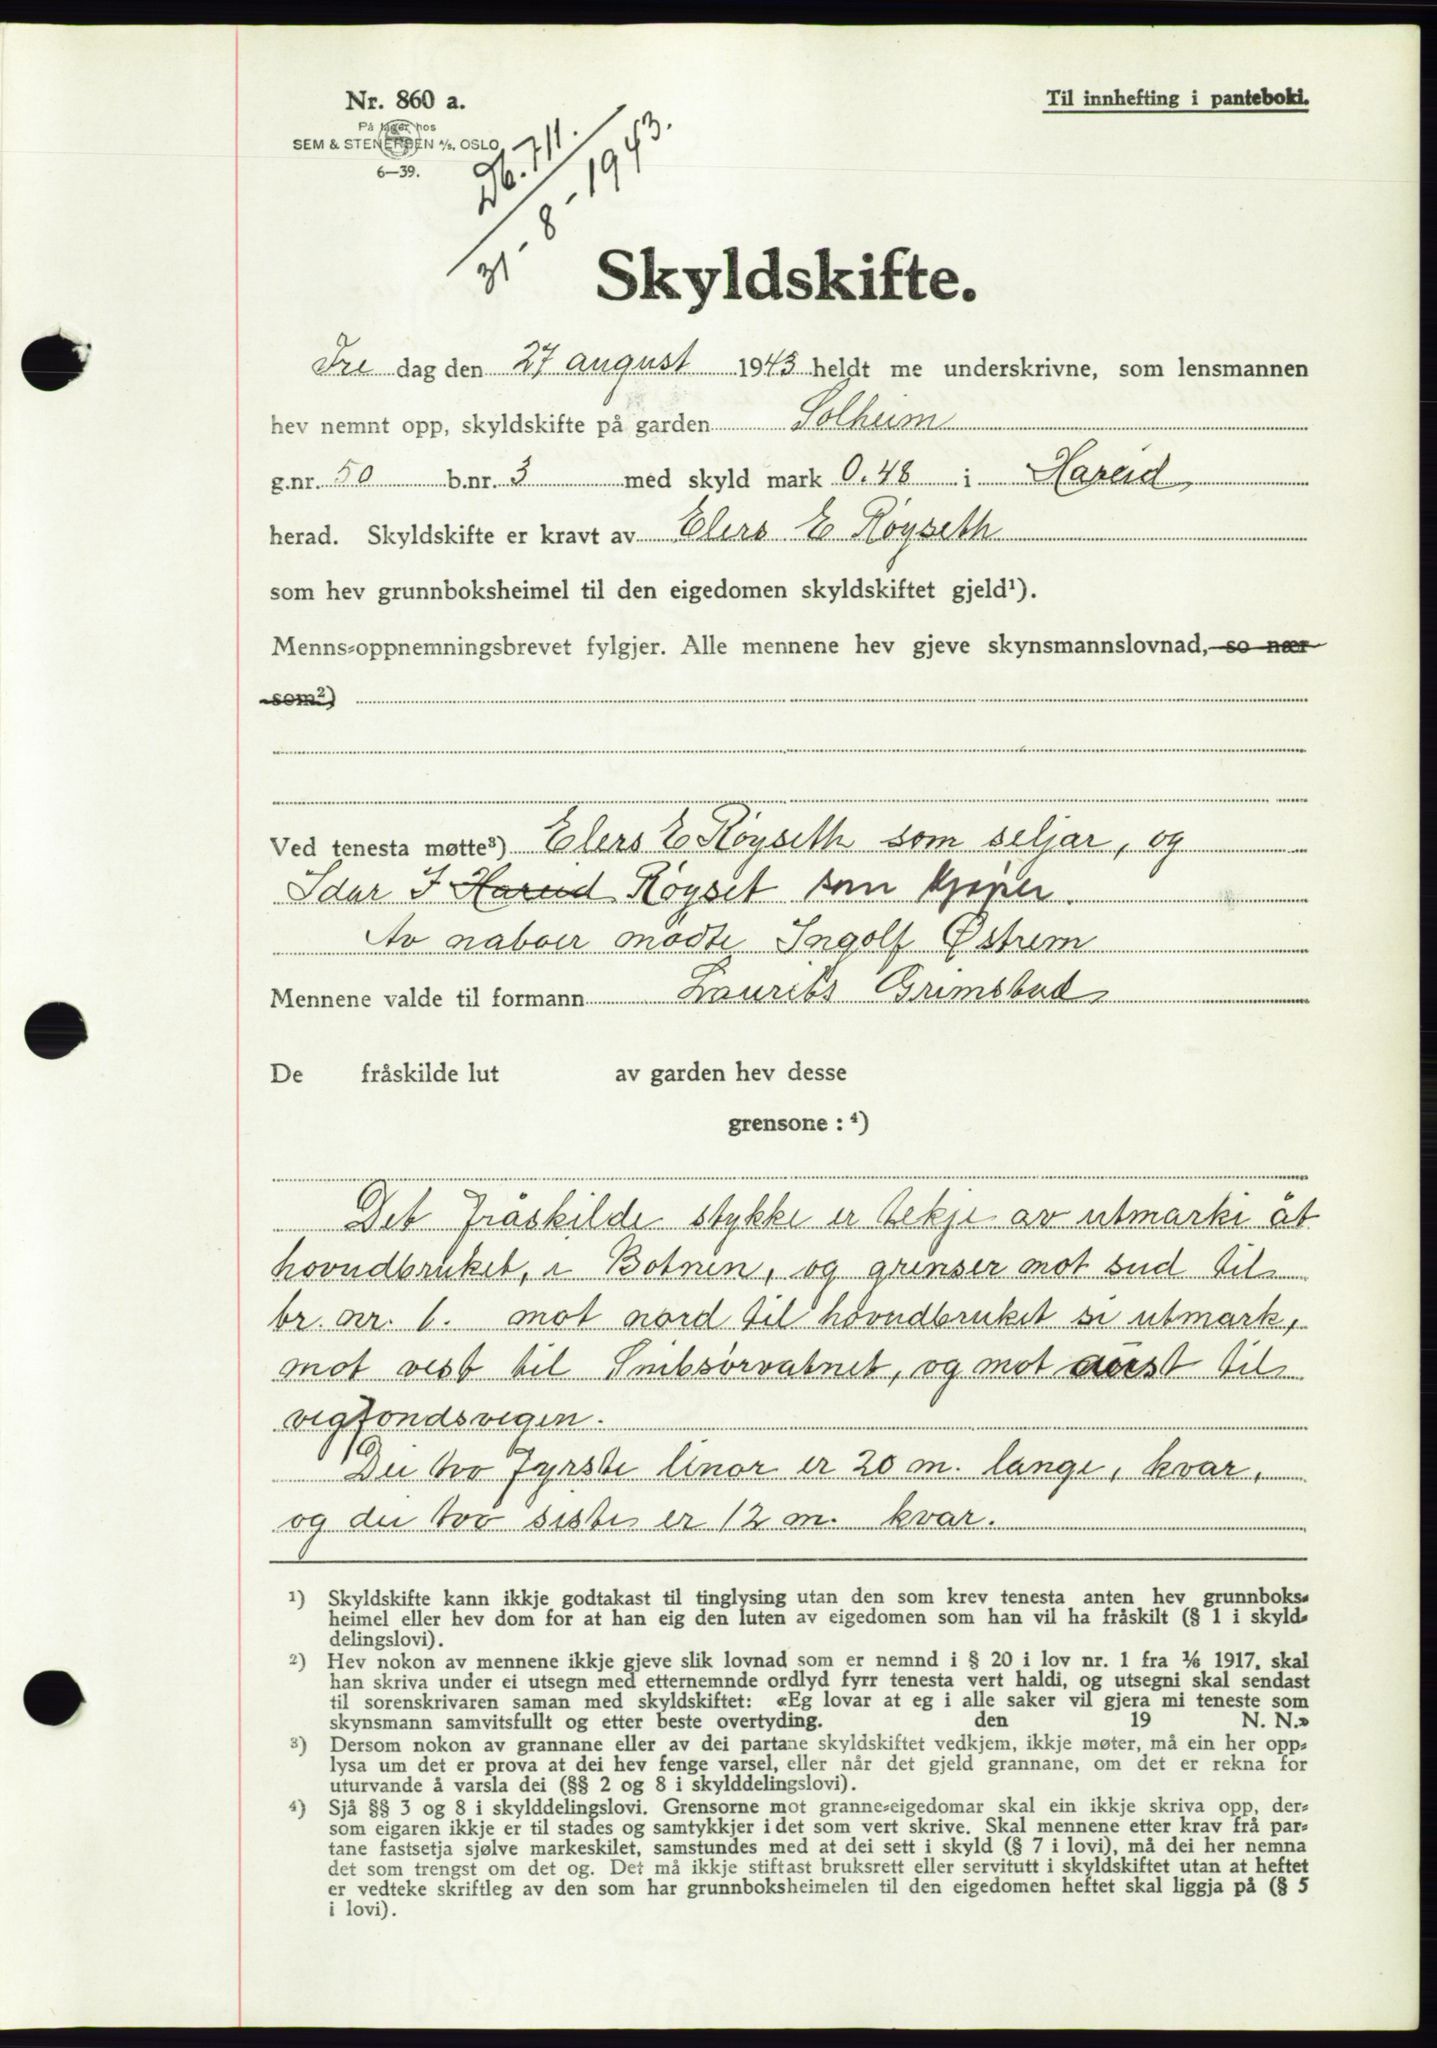 Nr. 860 a.
Til innhefting i panteboki.
På lager hos
SEM & STENERSEN A/S, OSLO
6—39.
Db. 711.
31 - 8 - 1943.
Skyldskifte.
Fre dag den 27 august 1943 heldt me underskrivne, som lensmannen
hev nemnt opp, skyldskifte på garden Solheim
g.nr. 50 b.nr. 3 med skyld mark 0.48 i Hareid
herad. Skyldskifte er kravt av Elers E Røyseth
som hev grunnboksheimel til den eigedomen skyldskiftet gjeld¹).
Menns-oppnemningsbrevet fylgjer. Alle mennene hev gjeve skynsmannslovnad, so nær
som²)
Ved tenesta møtte³) Elers E Røyseth som seljar, og
Idar I Hareid Røyset som kjøper.
Av naboer mødte Ingolf Østrem
Mennene valde til formann Laurits Grimstad
De fråskilde lut av garden hev desse
grensone : ⁴)
Det fråskilde stykke er tekje av utmarki åt
hovudbruket, i Botnen, og grenser mot sud til
br. nr. 1. mot nord til hovudbruket si utmark,
mot vest til Snibsørvatnet, og mot aust til
vegfondsvegen.
Dei tvo fyrste linor er 20 m. lange, kvar,
og dei tvo siste er 12 m. kvar.
¹) Skyldskifte kann ikkje godtakast til tinglysing utan den som krev tenesta anten hev grunnboks-
heimel eller hev dom for at han eig den luten av eigedomen som han vil ha fråskilt (§ 1 i skyld-
delingslovi).
²) Hev nokon av mennene ikkje gjeve slik lovnad som er nemnd i § 20 i lov nr. 1 fra 1/6 1917, skal
han skriva under ei utsegn med etternemnde ordlyd fyrr tenesta vert haldi, og utsegni skal sendast
til sorenskrivaren saman med skyldskiftet: «Eg lovar at eg i alle saker vil gjera mi teneste som
skynsmann samvitsfullt og etter beste overtyding. den 19 N. N.»
³) Dersom nokon av grannane eller av dei partane skyldskiftet vedkjem, ikkje møter, må ein her opp-
lysa um det er prova at dei hev fenge varsel, eller når det gjeld grannane, om det er rekna for
uturvande å varsla dei (§§ 2 og 8 i skylddelingslovi).
⁴) Sjå §§ 3 og 8 i skylddelingslovi. Grensorne mot granne-eigedomar skal ein ikkje skriva opp, der-
som eigaren ikkje er til stades og samtykkjer i det som vert skrive. Skal mennene etter krav frå par-
tane fastsetja sjølve markeskilet, samstundes med at dei sett i skyld (§ 7 i lovi), må dei her nemna
det som trengst om det og. Det må ikkje stiftast bruksrett eller servitutt i skyldskiftet utan at heftet
er vedteke skriftleg av den som har grunnboksheimelen til den eigedomen heftet skal liggja på (§ 5
i lovi).